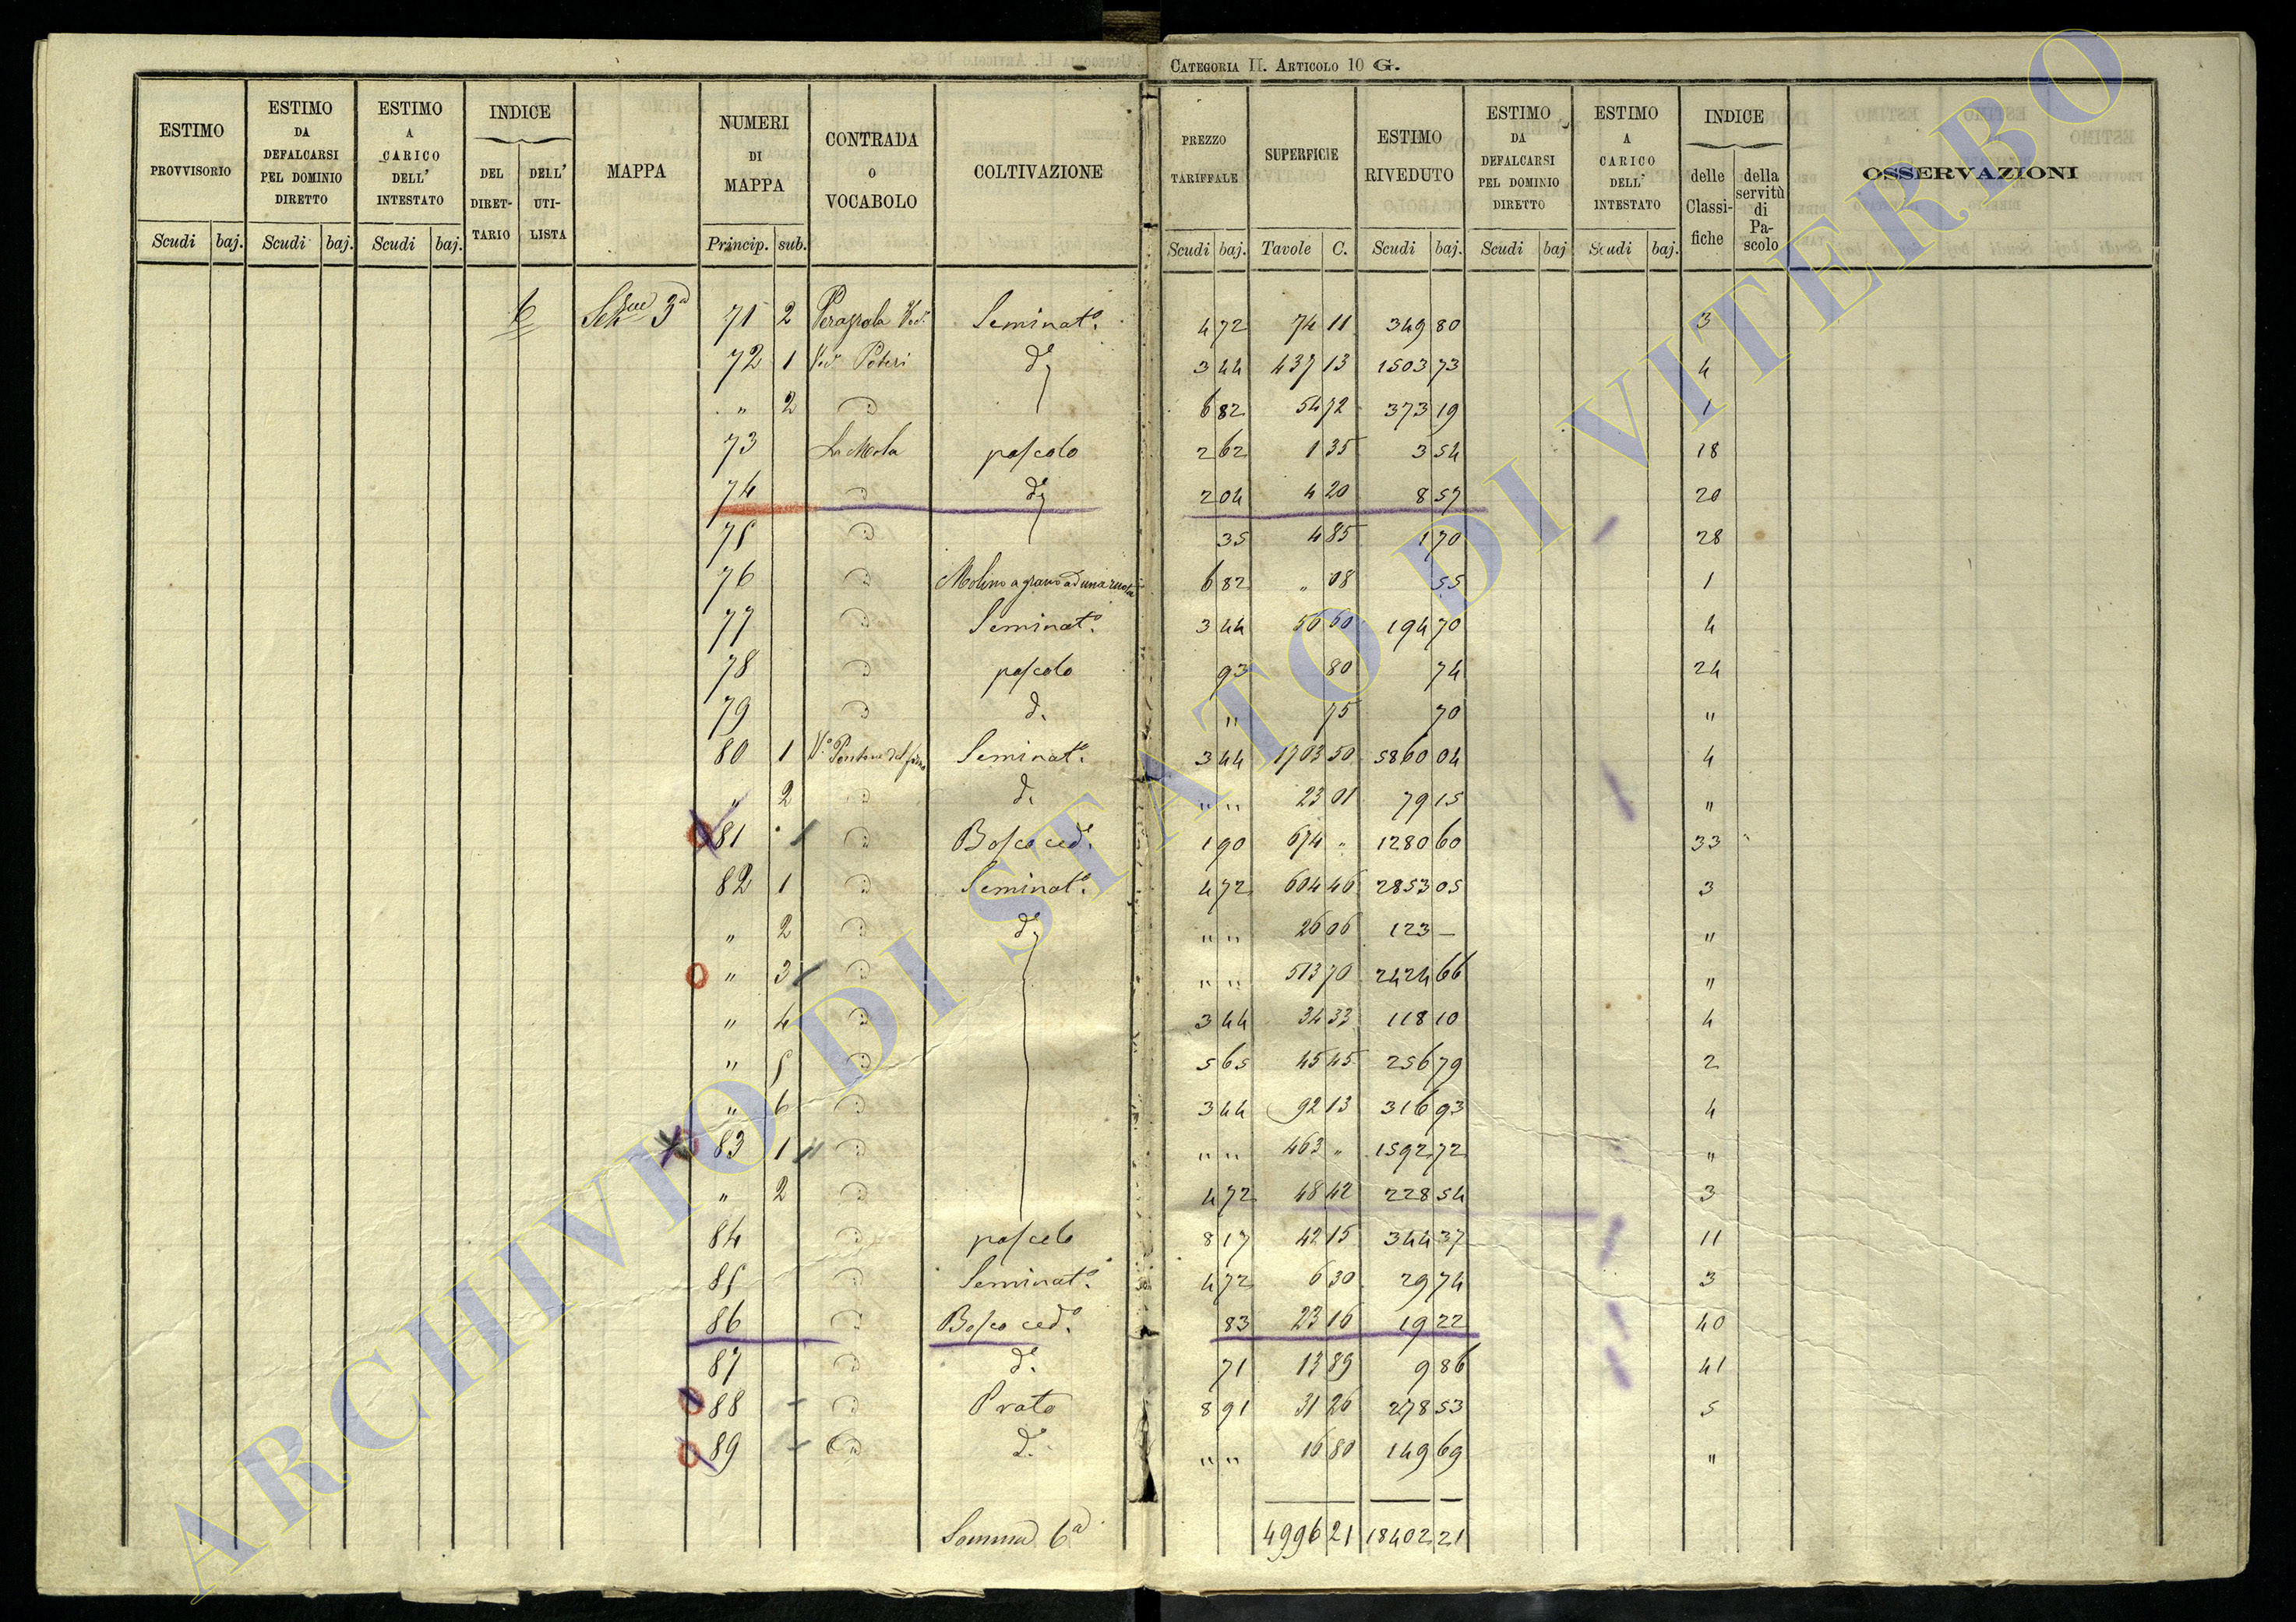 CATEGORIA II. ARTICOLO 10 G.
ESTIMO PROVVISORIO | ESTIMO DA DEFALCARSI PEL DOMINIO DIRETTO | ESTIMO A CARICO DELL' INTESTATO | INDICE DEL DIRETTARIO | DELL' UTILISTA | MAPPA | NUMERI DI MAPPA | CONTRADA O VOCABOLO | COLTIVAZIONE | PREZZO TARIFFALE | SUPERFICIE | ESTIMO RIVEDUTO | ESTIMO DA DEFALCARSI PEL DOMINIO DIRETTO | ESTIMO A CARICO DELL' INTESTATO | INDICE delle Classifiche | della servitù di Pascolo | OSSERVAZIONI
Scudi baj. | Scudi baj. | Scudi baj. | Princip. sub. | Scudi baj. | Tavole C. | Scudi baj. | Scudi baj | Scudi baj.
6 | 3ª | 71 | 2 | Seminatº. | 4 72 | 74 11 | 349 80 | 3
72 | 1 | Poteri | dº | 3 44 | 437 13 | 1503 73 | 4
" | 2 | 6 82 | 54 72 | 373 19 | 1
73 | La Mola | pascolo | 2 62 | 1 35 | 3 54 | 18
74 | dº | 2 04 | 4 20 | 8 57 | 20
75 | 35 | 4 85 | 1 70 | 28
76 | Molino a grano ad una ruota | 6 82 | " 08 | 55 | 1
77 | Seminatº. | 3 44 | 56 60 | 194 70 | 4
78 | pascolo | 93 | 80 | 74 | 24
79 | d. | " | 75 | 70 | "
80 | 1 | Seminatº. | 3 44 | 1703 50 | 5860 04 | 4
" | 2 | d. | " " | 23 01 | 79 15 | "
81 | Bosco cedº. | 1 90 | 674 " | 1280 60 | 33
82 | 1 | Seminatº. | 4 72 | 604 46 | 2853 05 | 3
" | 2 | dº | " " | 26 06 | 123 — | "
" | 3 | " " | 513 70 | 2424 66 | "
" | 4 | 3 44 | 34 33 | 118 10 | 4
" | 5 | 5 65 | 45 45 | 256 79 | 2
" | 6 | 3 44 | 92 13 | 316 93 | 4
83 | 1 | " " | 463 " | 1592 72 | "
" | 2 | 4 72 | 48 42 | 228 54 | 3
84 | pascolo | 8 17 | 42 15 | 344 37 | 11
85 | Seminatº. | 4 72 | 6 30 | 29 74 | 3
86 | Bosco cedº. | 83 | 23 16 | 19 22 | 40
87 | dº. | 71 | 13 89 | 9 86 | 41
88 | Prato | 8 91 | 31 26 | 278 53 | 5
89 | dº. | " " | 16 80 | 149 69 | "
Somma 6ª | 4996 21 | 18402 21
ARCHIVIO DI STATO DI VITERBO